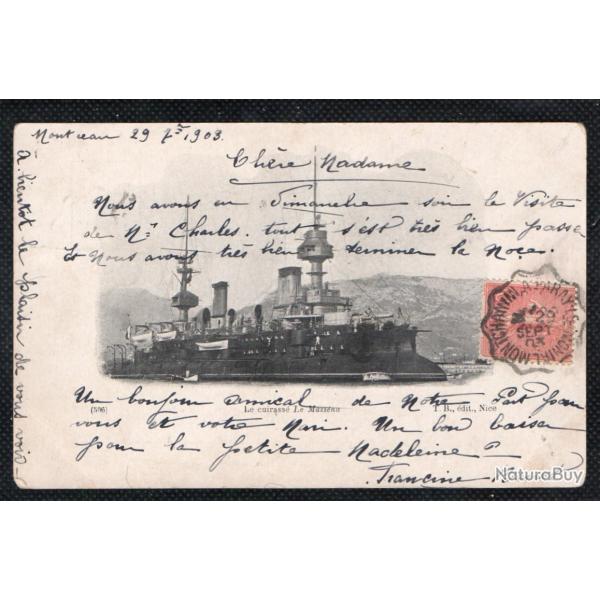 Montceau 29 7bre 1903.
Chère Madame
Nous avons eu Dimanche soir la Visite
de Mr Charles. tout s'est très bien passé
Et Nous avons très bien terminer la Noce.
(506) Le cuirassé Le Masséna T. B., édit., Nice
Un bonjour amical de Notre Part pour
vous et votre Mari. Un bon baiser
pour la petite Madeleine
Francine
à bientot le plaisir de vous voir
29
SEPT
03
NaturaBuy